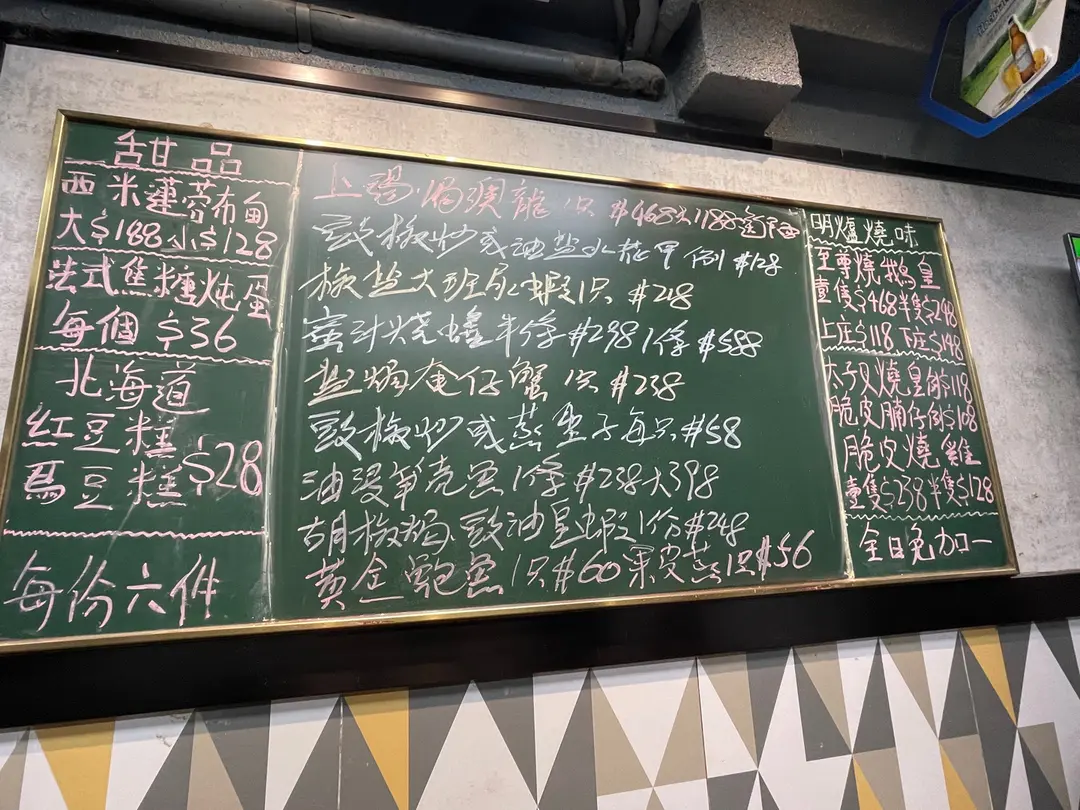 甜品
西米蓮蓉布甸
大$188小$128
法式焦糖炖蛋
每個 $36
北海道
紅豆糕
馬豆糕 $28
每份六件
上湯.焗澳龍 1只 #468大1188
豉椒炒或油盐水花甲 例 #128
椒盐大班尿虾1只 #218
蜜汁烧鱔半條#298 1條 #588
盐焗奄仔蟹 1只 #238
豉椒炒或蒸圣子每只#58
油浸筍壳魚 1條 #238大398
胡椒焗.豉油皇虾1份#248
黄金鲍魚1只#60果皮蒸1只$56
明爐燒味
至尊燒鵝皇
壹隻$468半隻$248
上庄$118 下庄$148
太子叉燒皇例$118
脆皮腩仔例$108
脆皮燒雞
壹隻$238半隻$128
全日免加一